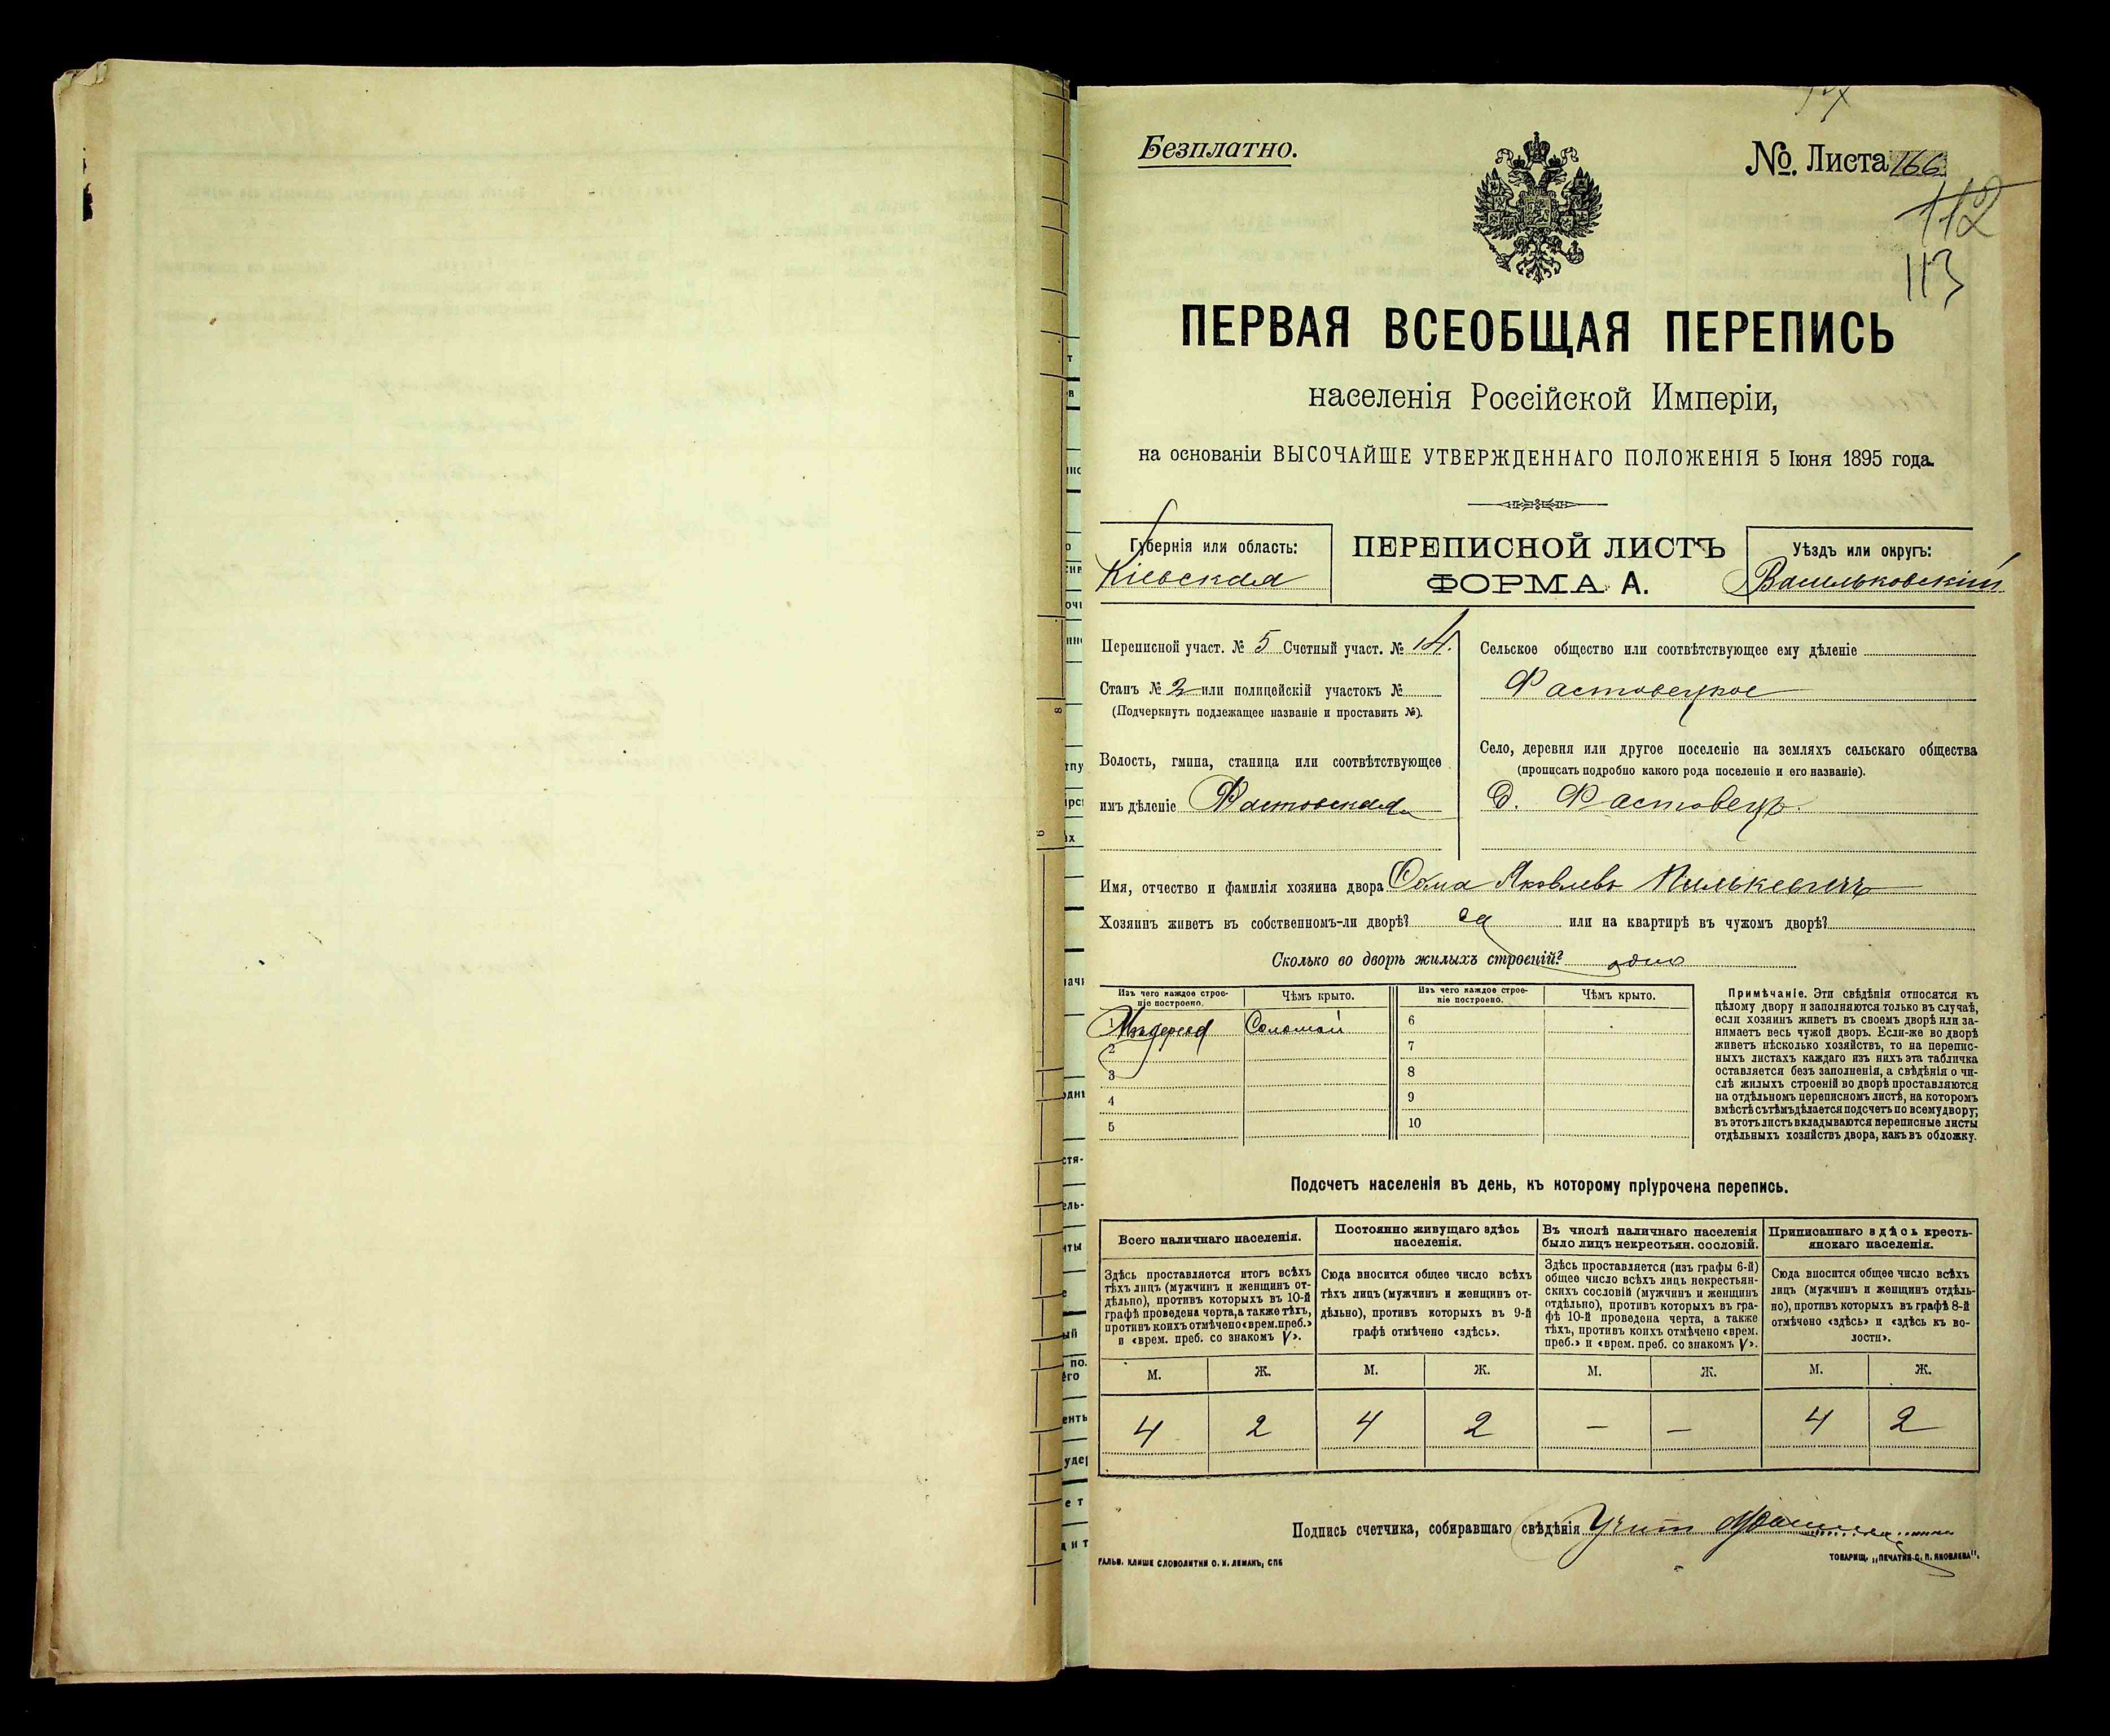 Безплатно.
№. Листа 166
112
113
ПЕРВАЯ ВСЕОБЩАЯ ПЕРЕПИСЬ
населенія Россійской Имперіи,
на основаніи ВЫСОЧАЙШЕ УТВЕРЖДЕННАГО ПОЛОЖЕНІЯ 5 Іюня 1895 года.
Губернія или область:
Кіевская
ПЕРЕПИСНОЙ ЛИСТЪ
ФОРМА А.
Уѣздъ или округъ:
Васильковскій
Переписной участ. № 5 Счетный участ. № 14.
Станъ № 2 или полицейскій участокъ №
(Подчеркнуть подлежащее названіе и проставить №).
Волость, гмина, станица или соотвѣтствующее
имъ дѣленіе Фастовская
Сельское общество или соотвѣтствующее ему дѣленіе
Фастовецкое
Село, деревня или другое поселеніе на земляхъ сельскаго общества
(прописать подробно какого рода поселеніе и его названіе).
д. Фастовецъ
Имя, отчество и фамилія хозяина двора Ѳома Яковлевъ Пилькевичъ
Хозяинъ живетъ въ собственномъ-ли дворѣ? да или на квартирѣ въ чужомъ дворѣ?
Сколько во дворѣ жилыхъ строеній? одно
Изъ чего каждое строе-
ніе построено.
Чѣмъ крыто.
Изъ чего каждое строе-
ніе построено.
Чѣмъ крыто.
1 Изъ дерева Соломой 6
2 7
3 8
4 9
5 10
Примѣчаніе. Эти свѣдѣнія относятся къ
цѣлому двору и заполняются только въ случаѣ,
если хозяинъ живетъ въ своемъ дворѣ или за-
нимаетъ весь чужой дворъ. Если-же во дворѣ
живетъ нѣсколько хозяйствъ, то на перепис-
ныхъ листахъ каждаго изъ нихъ эта табличка
оставляется безъ заполненія, а свѣдѣнія о чи-
слѣ жилыхъ строеній во дворѣ проставляются
на отдѣльномъ переписномъ листѣ, на которомъ
вмѣстѣ съ тѣмъ дѣлается подсчетъ по всему двору;
въ этотъ листъ вкладываются переписные листы
отдѣльныхъ хозяйствъ двора, какъ въ обложку.
Подсчетъ населенія въ день, къ которому пріурочена перепись.
Всего наличнаго населенія.
Здѣсь проставляется итогъ всѣхъ
тѣхъ лицъ (мужчинъ и женщинъ от-
дѣльно), противъ которыхъ въ 10-й
графѣ проведена черта, а также тѣхъ,
противъ коихъ отмѣчено «врем. преб.»
и «врем. преб. со знакомъ V».
Постоянно живущаго здѣсь
населенія.
Сюда вносится общее число всѣхъ
тѣхъ лицъ (мужчинъ и женщинъ от-
дѣльно), противъ которыхъ въ 9-й
графѣ отмѣчено «здѣсь».
Въ числѣ наличнаго населенія
было лицъ некрестьян. сословій.
Здѣсь проставляется (изъ графы 6-й)
общее число всѣхъ лицъ некрестьян-
скихъ сословій (мужчинъ и женщинъ
отдѣльно), противъ которыхъ въ гра-
фѣ 10-й проведена черта, а также
тѣхъ, противъ коихъ отмѣчено «врем.
преб.» и «врем. преб. со знакомъ V».
Приписаннаго здѣсь кресть-
янскаго населенія.
Сюда вносится общее число всѣхъ
лицъ (мужчинъ и женщинъ отдѣль-
но), противъ которыхъ въ графѣ 8-й
отмѣчено «здѣсь» и «здѣсь къ во-
лости».
М. Ж. М. Ж. М. Ж. М. Ж.
4 2 4 2 — — 4 2
Подпись счетчика, собиравшаго свѣдѣнія
ГАЛЬВ. КЛИШЕ СЛОВОЛИТНИ О. И. ЛЕМАНЪ, СПБ
ТОВАРИЩ. „ПЕЧАТНЯ С. П. ЯКОВЛЕВА".